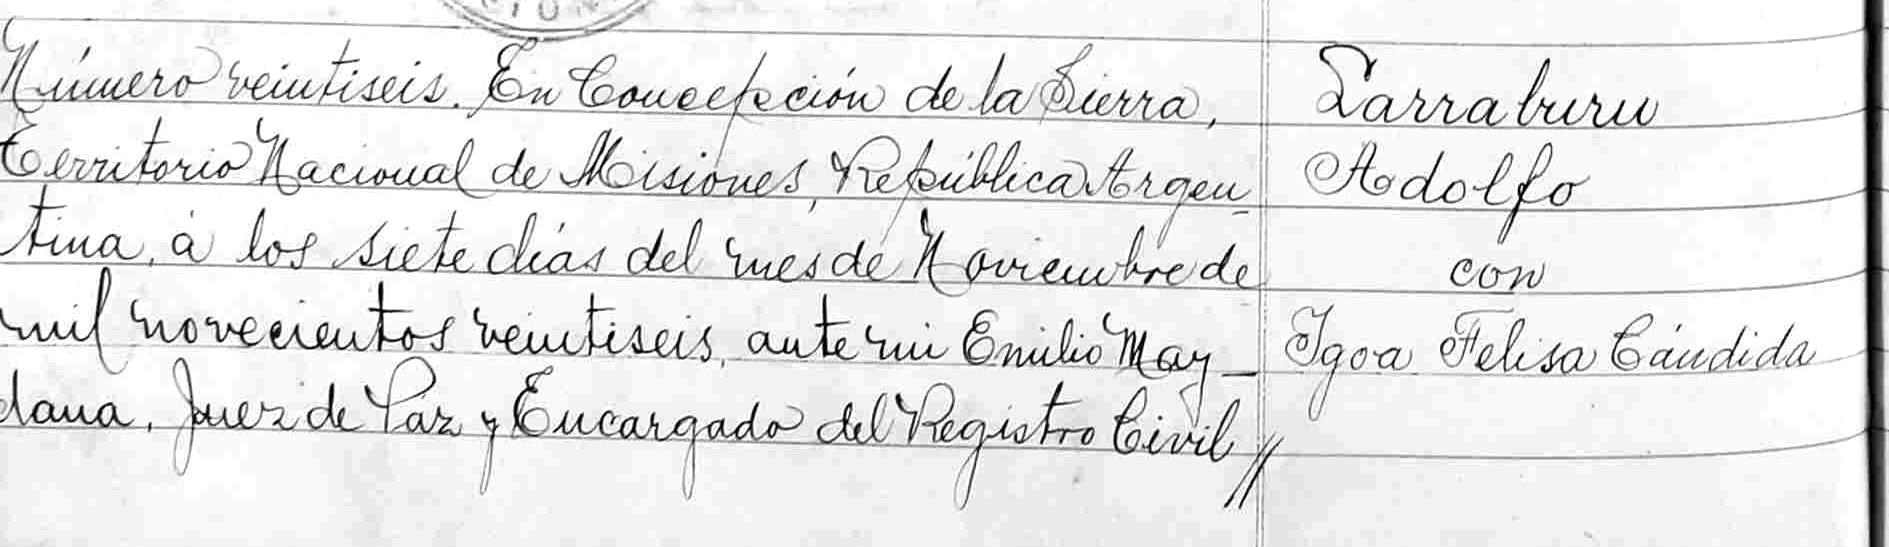 Número veintiseis. En Concepción de la Sierra,
Territorio Nacional de Misiones, República Argen-
tina, á los siete días del mes de Noviembre de
mil novecientos veintiseis, ante mi Emilio May-
dana, Juez de Paz y Encargado del Registro Civil //
Larraburu
Adolfo
con
Igoa Felisa Cándida